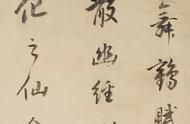 舞鶴賦
散幽經
化之仙